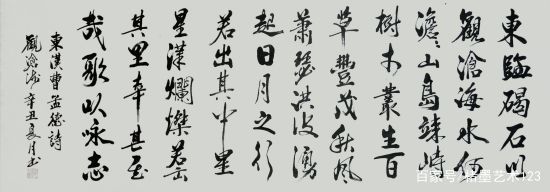 東臨碣石以
觀滄海水何
澹澹山島竦峙
樹木叢生百
草豐茂秋風
蕭瑟洪波湧
起日月之行
若出其中星
星漢爛燦若
其里幸甚至
哉歌以咏志
東漢曹孟德詩
觀滄海 辛丑夏月書
百家号/墨艺术123